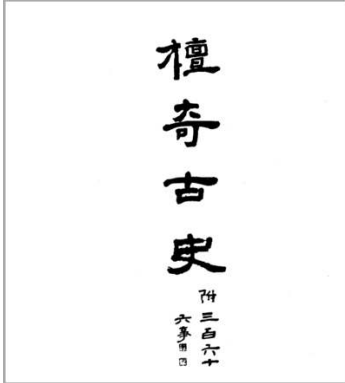 檀奇古史
附三百六十
六事